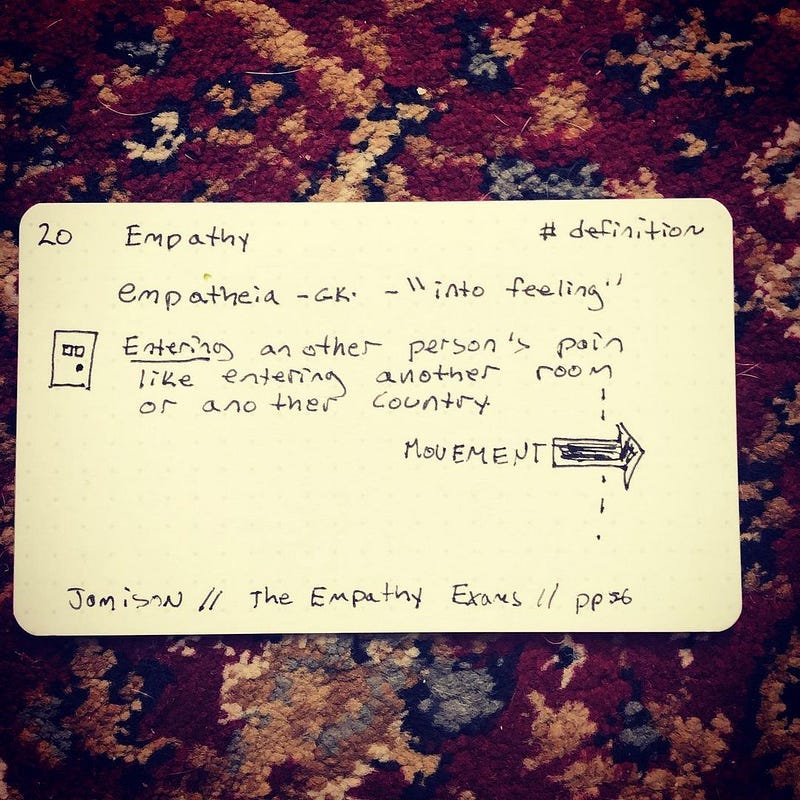 20 Empathy # definition
empatheia - GK. - "into feeling"
Entering another person's pain
like entering another room
or another country
MOVEMENT
Jamison // The Empathy Exams // pp